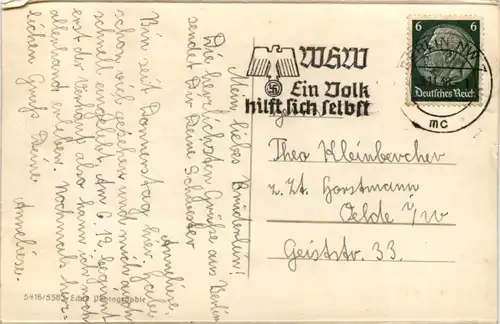 Mein liebes Brüderlein!
Die herzlichsten Grüße aus Berlin
sendet Dir Deine Schwester
Anneliese.
Bin seit Donnerstag hier. Habe
schon viel gesehen und mich auch
schnell eingelebt. Am 6. 12. beginnt
erst der Verkauf, also kann ich noch
allerhand erleben. Nochmals herz-
lichen Gruß Deine
Anneliese.
5416/5585 Echte Photographie
WHW
Ein Volk
hilft sich selbst
BERLIN NW 7
mc
6 6
Deutsches Reich
Herrn
Theo Kleinbercher
z. Zt. Horstmann
Oelde i/W
Geiststr. 33.